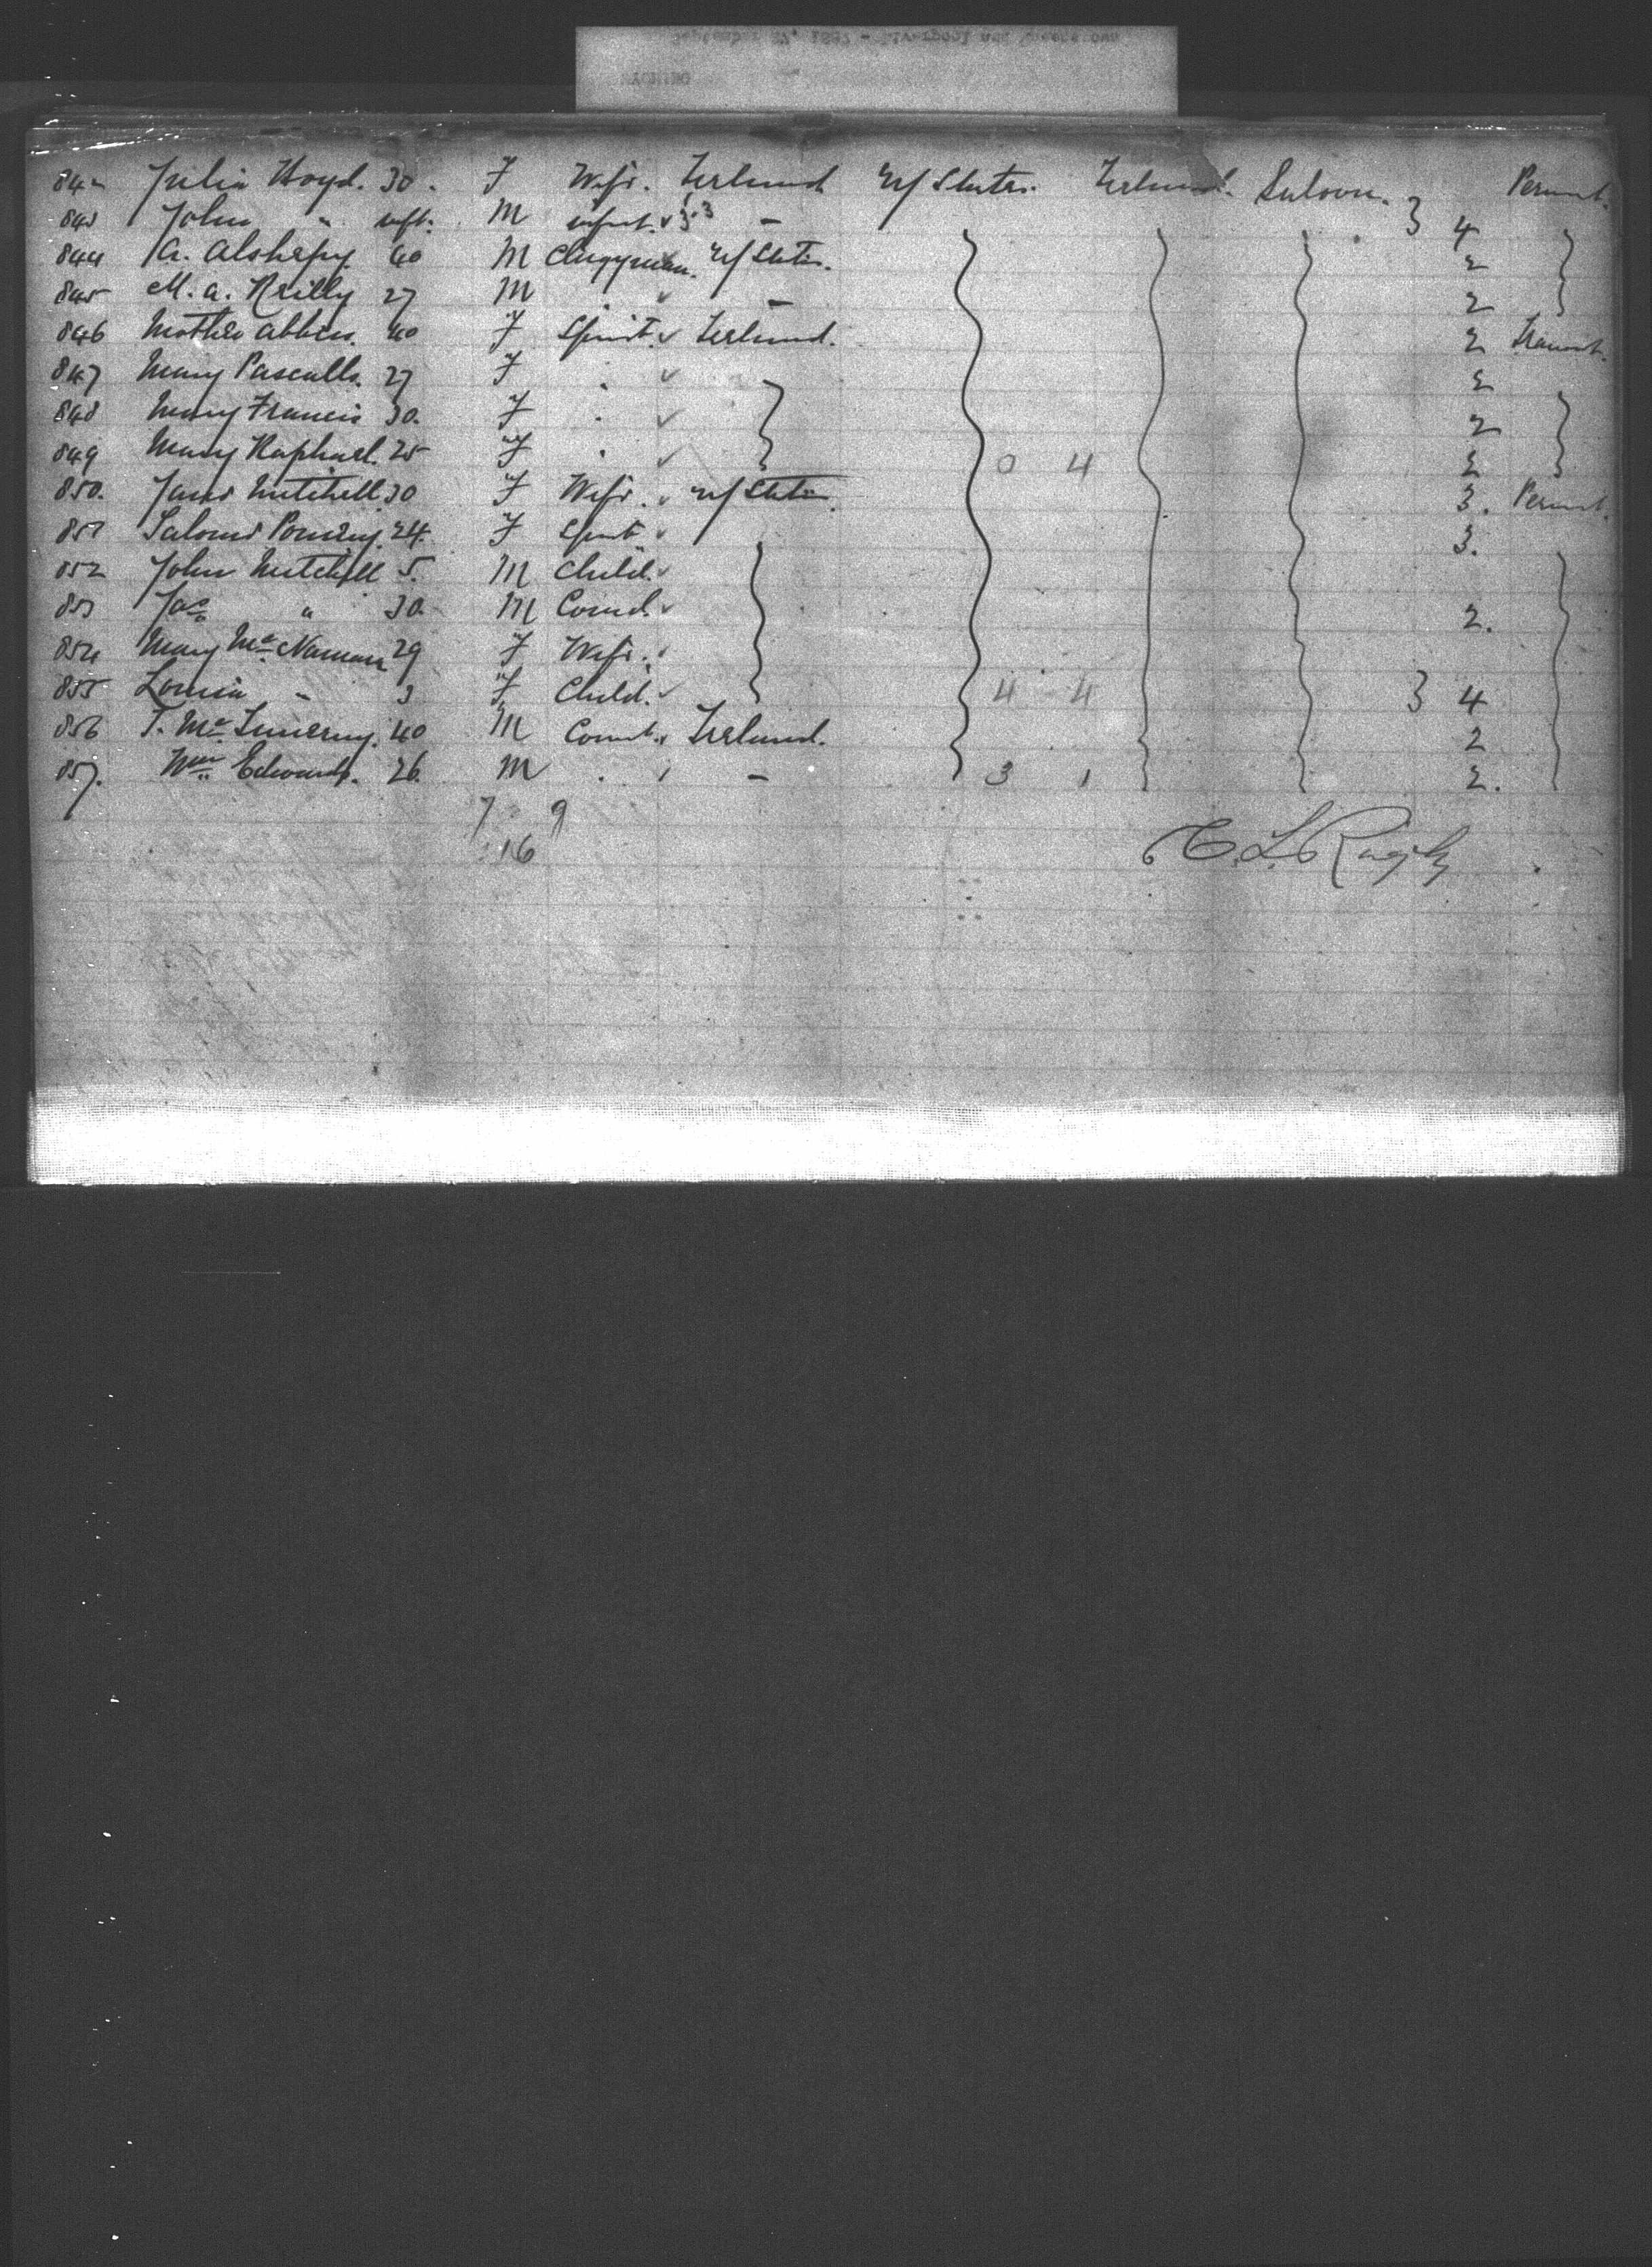 September 27, 1887 - Liverpool and Queenstown
WYOMING
842 Julia Hoyd. 30. F Wife. Ireland U/States. Ireland. Saloon. } 4 Permt.
843 John " inft. M infnt. -
844 A. 40 M Clergyman. U/States. 2
845 M. A. Reilly 27 M - 2
846 Mother 40 F Spinst. Ireland. 2 Transit.
847 Mary 27 F . 2
848 Mary Francis 30. F . 2
849 Mary Raphael. 25 F . 0 4 2
850. Jane Mitchell 30 F Wife. U/States. 3. Permt.
851 24. F Spinst. 3.
852 John Mitchell 5. M Child.
853 Jas " 30. M Comd. 2.
854 Mary Mc Namara 29 F Wife.
855 Louisa " 3 F Child. 4 4 } 4
856 T. Mc 40 M Comt. Ireland. 2
857. Wm Edwards. 26. M . - 3 1 2.
7 9
16